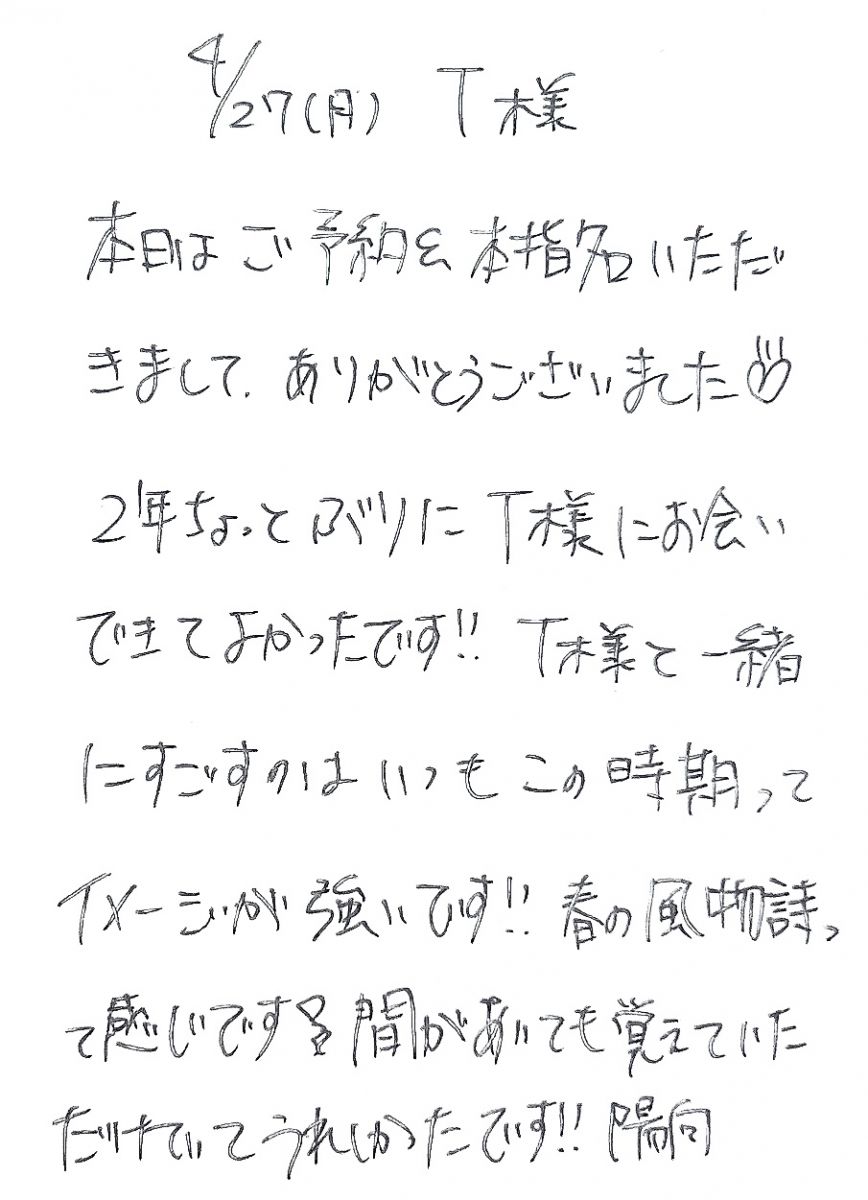 4/27(月) T様
本日はご予約&本指名いただ
きまして、ありがとうございました
2年ちょっとぶりにT様にお会い
できてよかったです!! T様と一緒
にすごすのはいつもこの時期って
イメージが強いです!! 春の風物詩っ
て感じです 間があいても覚えていた
だけていてうれしかったです!! 陽向